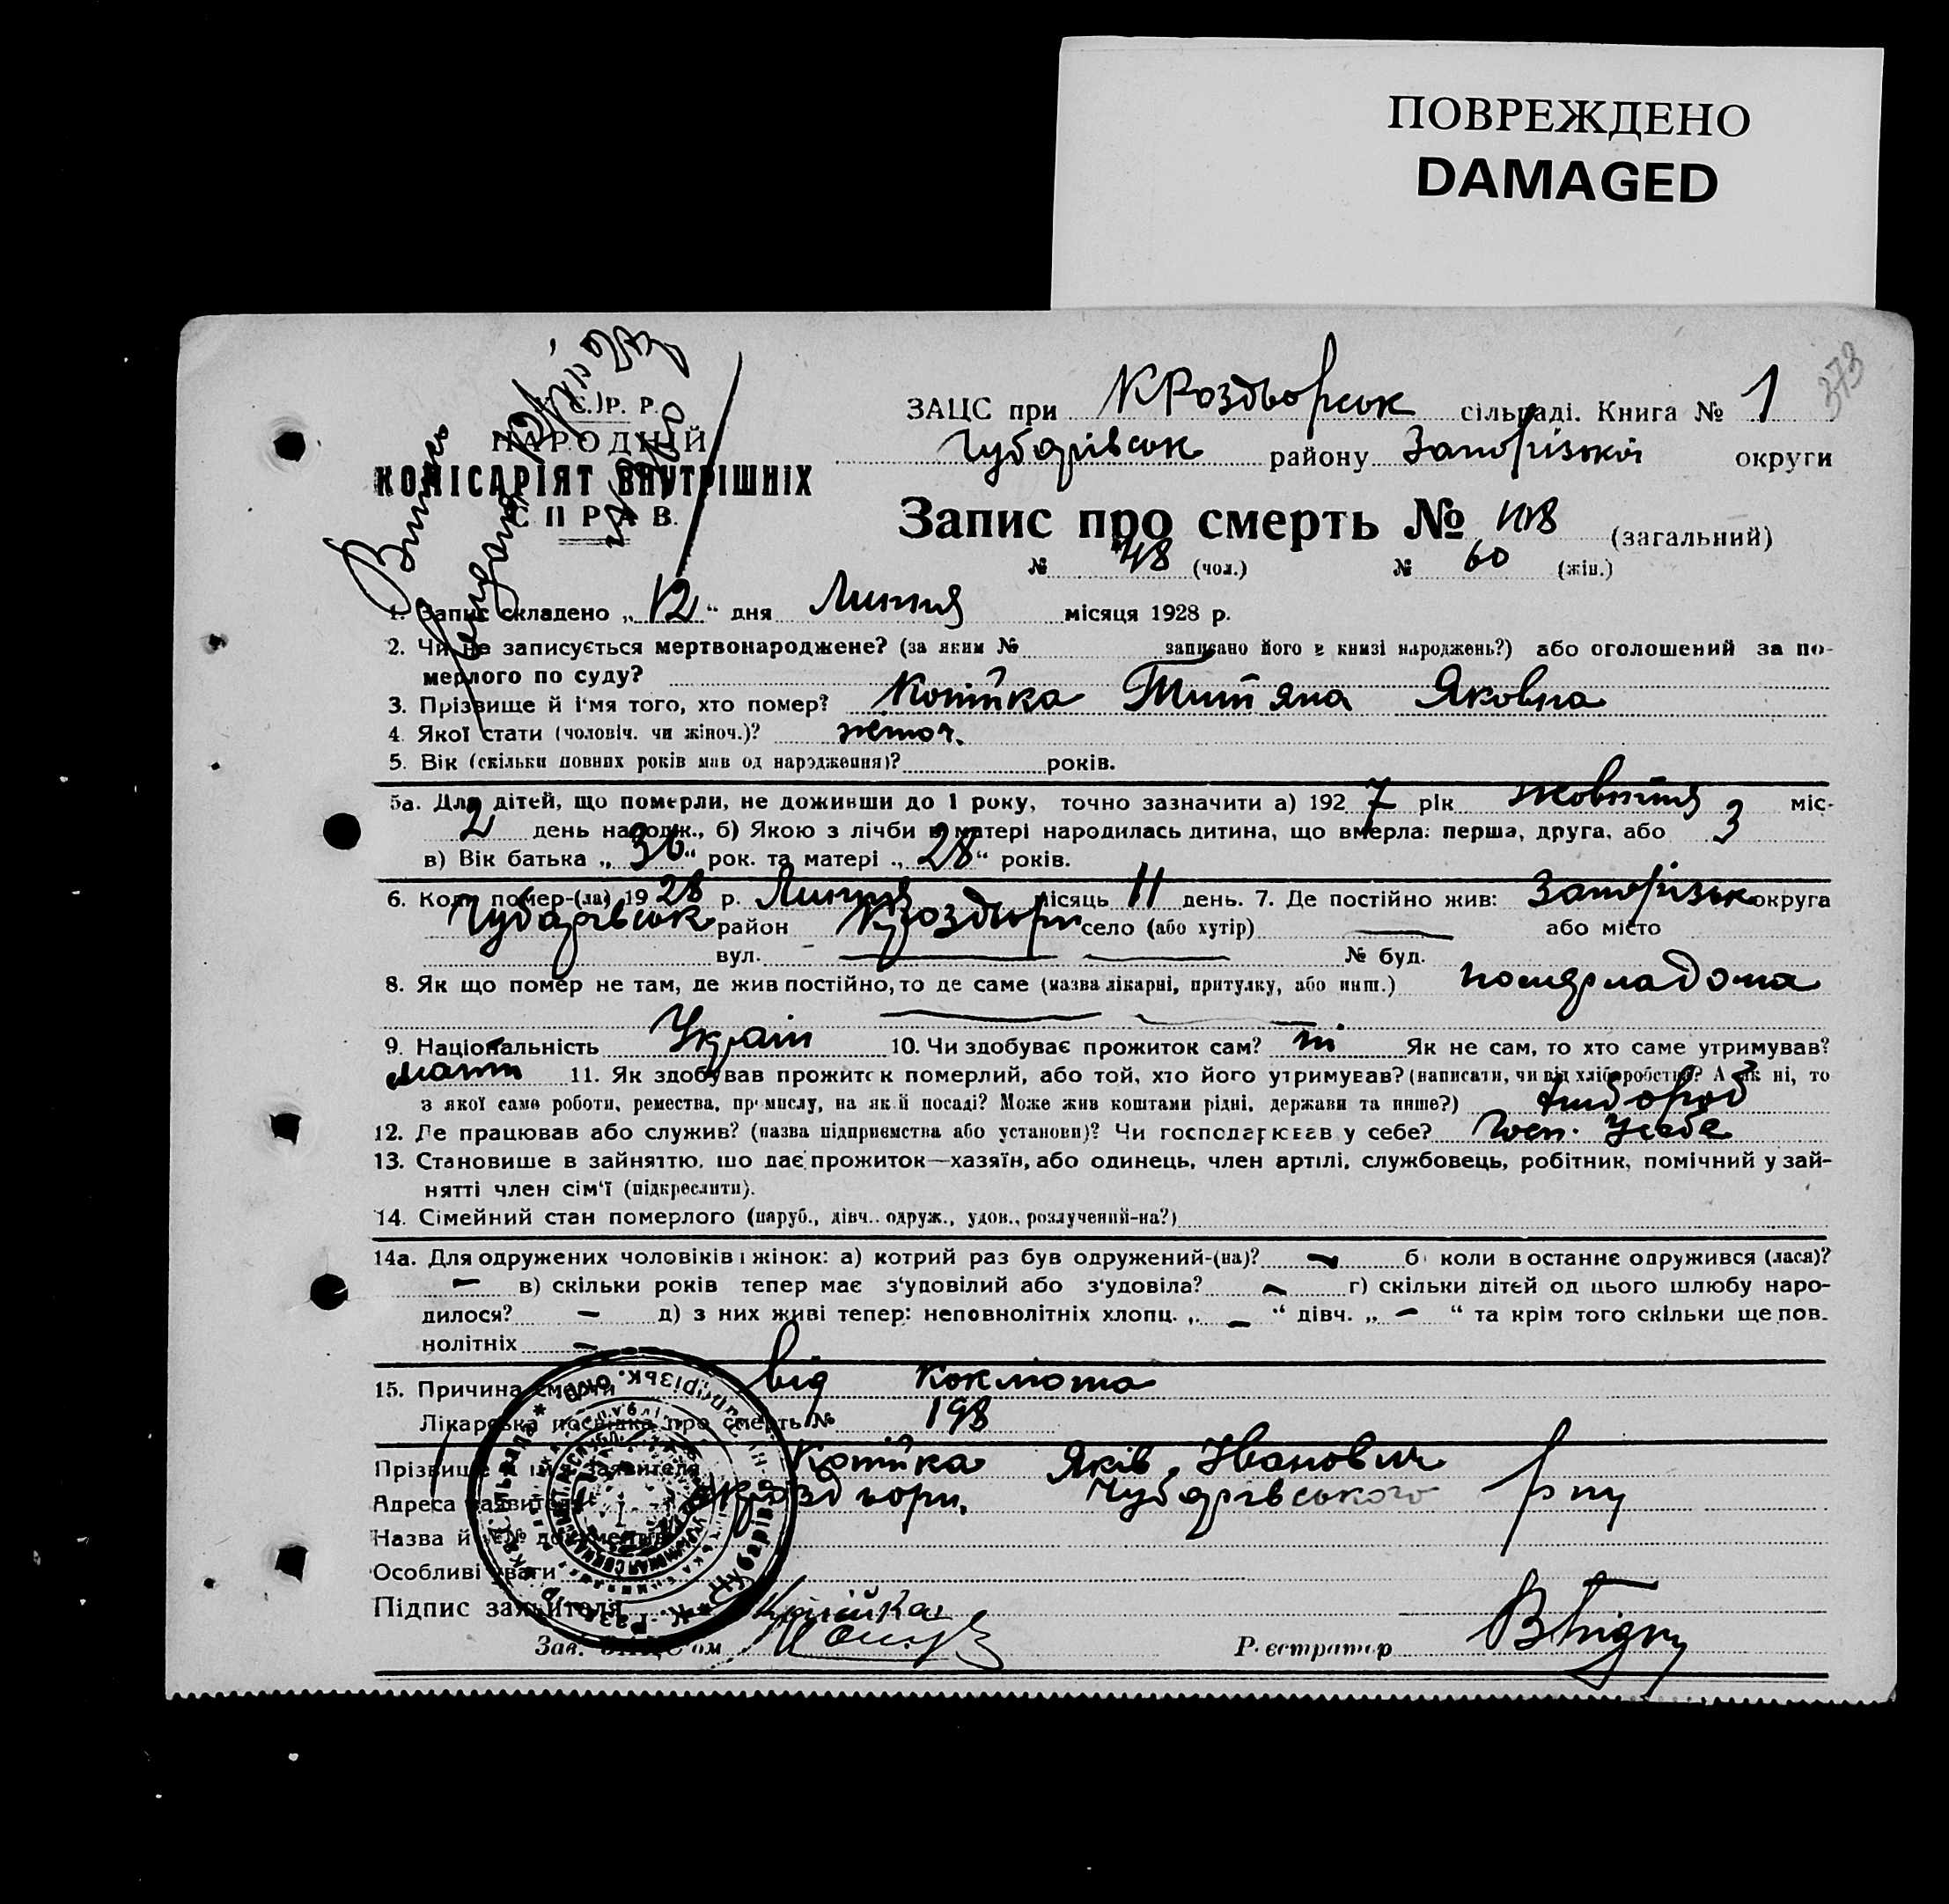 ПОВРЕЖДЕНО
DAMAGED
373
У. С. Р. Р.
НАРОДНІЙ
КОМІСАРІЯТ ВНУТРІШНІХ
СПРАВ.
ЗАЦС при К Роздорськ сільраді. Книга № 1
Чубарівськ району Запорізької округи
Запис про смерть № 108 (загальний)
№ 48 (чол.) № 60 (жін.)
1. Запис складено „12“ дня Липня місяця 1928 р.
2. Чи не записується мертвонароджене? (за яким № записано його в книзі народжень?) або оголошений за по-
мерлого по суду?
3. Прізвище й і'мя того, хто помер? Копійка Титяна Яковна
4. Якої стати (чоловіч. чи жіноч.)? жіноч.
5. Вік (скільки повних років мав од народження)? років.
5а. Для дітей, що померли, не доживши до 1 року, точно зазначити а) 1927 рік жовтня міс-
2 день народж., б) Якою з лічби в матері народилась дитина, що вмерла: перша, друга, або 3
в) Вік батька „36“ рок. та матері „28“ років.
6. Коли помер-(ла) 1928 р. Липня місяць 11 день. 7. Де постійно жив: Запорізьк округа
Чубарівськ район село (або хутір) — або місто
вул. — — № буд.
8. Як що помер не там, де жив постійно, то де саме (назва лікарні, притулку, або инш.) померла дома
9. Національність Украін 10. Чи здобуває прожиток сам? ні Як не сам, то хто саме утримував?
мати 11. Як здобував прожиток померлий, або той, хто його утримував? (написати, чи від хліборобства? А як ні, то
з якої саме роботи, ремества, промислу, на якій посаді? Може жив коштами рідні, держави та инше?) хлібороб
12. Де працював або служив? (назва підприємства або установи)? Чи господарював у себе? Усебе
13. Становише в зайняттю, що дає прожиток—хазяїн, або одинець, член артілі, службовець, робітник, помічний у зай-
нятті член сім'ї (підкреслити).
14. Сімейний стан померлого (паруб., дівч.. одруж., удов., розлучений-на?)
14а. Для одружених чоловіків і жінок: а) котрий раз був одружений-(на)? — б) коли в останнє одружився (лася)?
— в) скільки років тепер має з'удовілий або з'удовіла? — г) скільки дітей од цього шлюбу наро-
дилося? — д) з них живі тепер: неповнолітніх хлопц. „—“ дівч. „—“ та крім того скільки ще пов.
нолітніх —
15. Причина смерти від коклюша
Лікарська посвідка про смерть № 198
Прізвище й ім'я заявителя Копійка Яків Іванович
Адреса заявителя Чубарівського р ну
Назва й № документів
Особливі уваги
Підпис заявителя Копійка
Зав. ЗАЦС'ом
Реєстратор